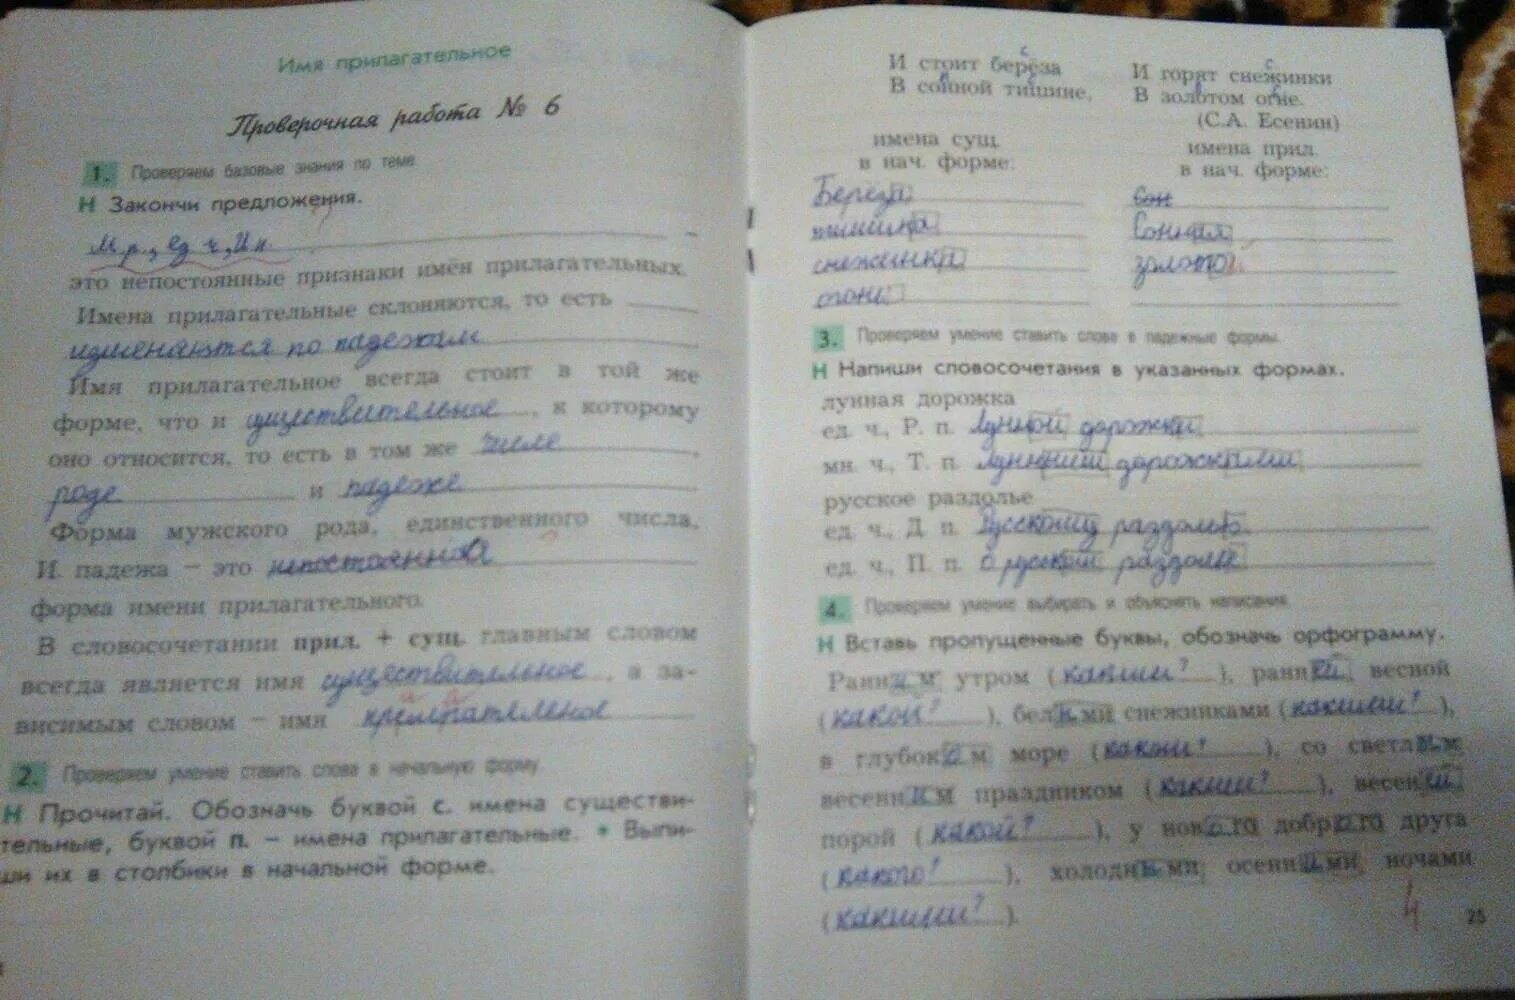 Имя прилагательное
Проверочная работа № 6
1. Проверяем базовые знания по теме.
Н Закончи предложения.
М.р., ед ч, И п.
это непостоянные признаки имён прилагательных.
Имена прилагательные склоняются, то есть
изменяются по падежам
Имя прилагательное всегда стоит в той же
форме, что и существительное, к которому
оно относится, то есть в том же числе,
роде и падеже
Форма мужского рода, единственного числа,
И. падежа – это непостоянная
форма имени прилагательного.
В словосочетании прил. + сущ. главным словом
всегда является имя существительное, а за-
висимым словом – имя
2. Проверяем умение ставить слова в начальную форму.
Н Прочитай. Обозначь буквой с. имена существи-
тельные, буквой п. – имена прилагательные. • Выпи-
ши их в столбики в начальной форме.
И стоит берёза
В сонной тишине,
И горят снежинки
В золотом огне.
(С.А. Есенин)
имена сущ.
в нач. форме:
имена прил.
в нач. форме:
Берёза
тишина
снежинка
огонь
Сон
Сонная
золотой
3. Проверяем умение ставить слова в падежные формы.
Н Напиши словосочетания в указанных формах.
лунная дорожка
ед. ч., Р. п. Лунной дорожки
мн. ч., Т. п. Лунными дорожками
русское раздолье
ед. ч., Д. п. Русскому раздолью
ед. ч., П. п. О русский раздолье
4. Проверяем умение выбирать и объяснять написания.
Н Вставь пропущенные буквы, обозначь орфограмму.
Ранним утром (каким?), ранней весной
(какой?), белыми снежинками (какими?),
в глубоком море (каком?), со светлым
весенним праздником (каким?), весенней
порой (какой?), у нового доброго друга
(какого?), холодными осенними ночами
(какими?).
4
25